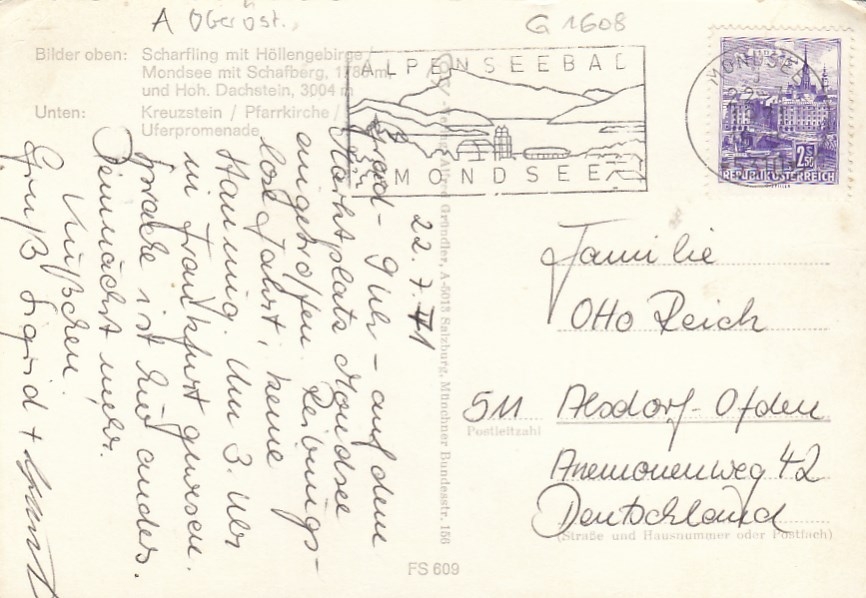 A Oberöst.,
G 1608
Bilder oben: Scharfling mit Höllengebirge /
Mondsee mit Schafberg, 1780 m
und Hoh. Dachstein, 3004 m
Unten: Kreuzstein / Pfarrkirche /
Uferpromenade
ALPENSEEBAD
MONDSEE
MONDSEE
2 S 50
REPUBLIK ÖSTERREICH
22. 7. 71
9 Uhr - auf dem
Marktplatz Mondsee
eingetroffen. Reibungs-
lose Fahrt, keine
Stauung. Um 3. Uhr
in Frankfurt gewesen.
ist hier anders.
Demnächst mehr.
Küßchen
Gruß Sigrid +
Verlag Alfred Gründler, A-5013 Salzburg, Münchner Bundesstr. 156
Familie
Otto Reich
511 Alsdorf-Ofden
Postleitzahl
Anemonenweg 42
Deutschland
(Straße und Hausnummer oder Postfach)
FS 609